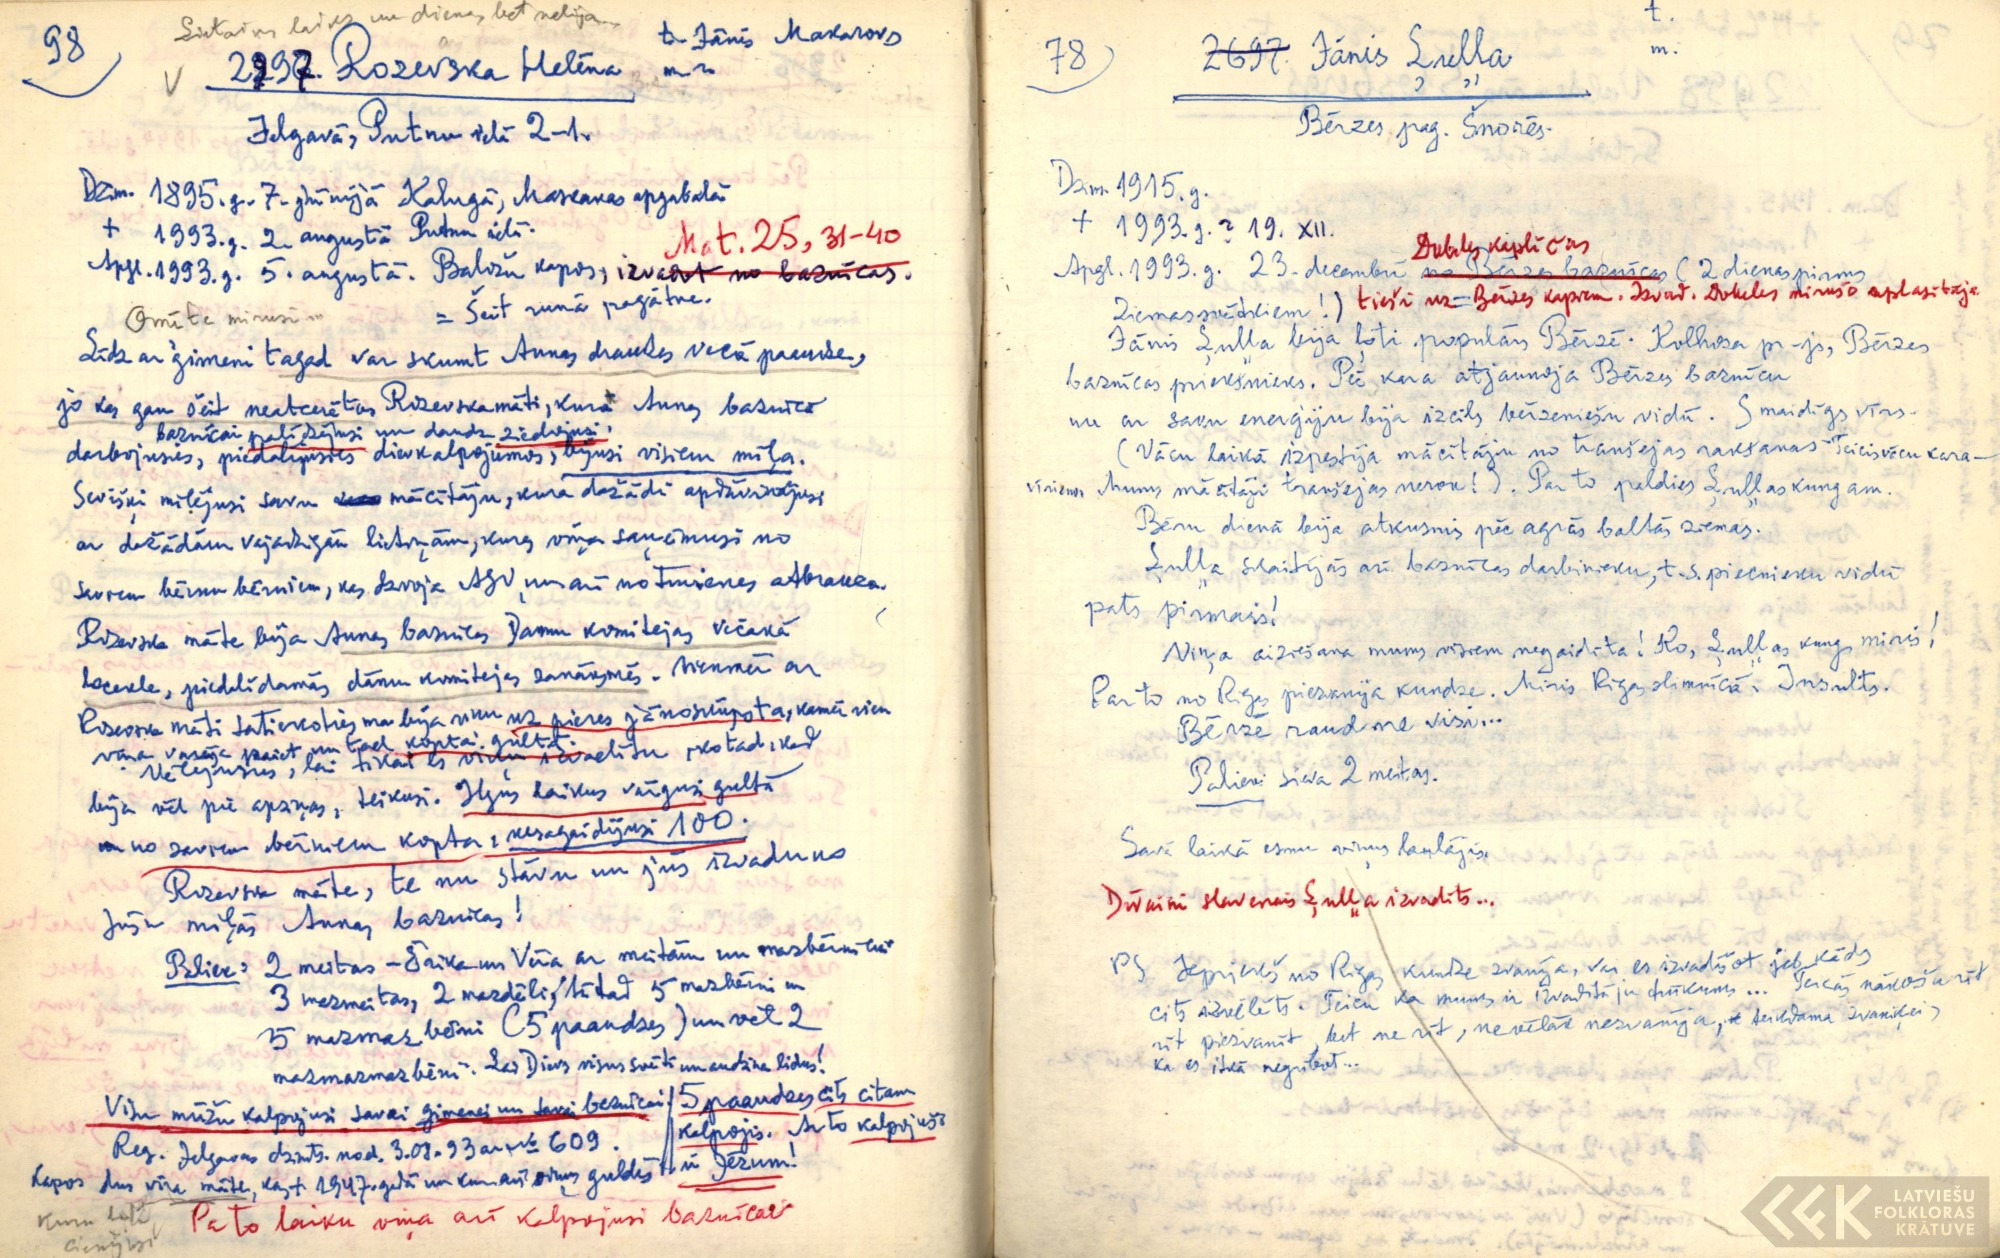 Lietains laiks un dienas bet nelija
98
2297. Rozevska Helēna
t. Jānis Makarovs
m. ?
V
Jelgavā, Putnu ielā 2-1.
Dzim. 1895.g. 7. jūnijā Kalugā, Maskavas apgabalā
+ 1993.g. 2. augustā Putnu ielā.
Mat. 25, 31-40
Apgl. 1993.g. 5. augustā. Baložu kapos, izvadot no baznīcas.
Omīte mirusi
= Šeit runā pagātne.
Līdz ar ģimeni tagad var skumt Annas draudzes vecā paaudze,
jo kas gan šeit neatcerētos Rozevska māti, kura Annas baznīcā
baznīcai palīdzējusi un daudz ziedojusi,
darbojusies, piedalījusies dievkalpojumos, bijusi visiem mīļa.
Sevišķi mīlējusi savu mācītāju, kuru dažādi apdāvinājusi
ar dažādām vajadzīgām lietiņām, kuras viņa saņēmusi no
saviem bērnu bērniem, kas dzīvoja ASV un arī no turienes atbrauca.
Rozevska māte bija Annas baznīcas Dāmu komitejas vecākā
locekle, piedalīdamās dāmu komitejas sanāksmēs. Vienmēr ar
Rozevska māti satiekoties man bija viņu uz pieres jānoskūpsta, kamēr vien
viņa varēja paiet un tad kopta gultā.
Vēlējusies, lai tikai es viņu izvadītu, kad
bija vēl pie apziņas, teikusi. Ilgus laikus vārgusi gultā
no saviem bērniem kopta, nesagaidījusi 100.
Rozevska māte, te nu stāvu un jūs izvadu no
Jūsu mīļās Annas baznīcas!
Paliek: 2 meitas - Ērika un Vēra ar meitām un mazbērniem
3 mazmeitas, 2 mazdēli, tātad 5 mazbērni un
5 mazmazbērni (5 paaudzes) un vēl 2
mazmazmazbērni. Lai Dievs visus svēti un audzina lielus!
Visu mūžu kalpojusi savai ģimenei un savai baznīcai.
5 paaudzes cits citam
kalpojis. Ar to kalpojuši
ir Jēzum!
Reg. Jelgavas dzimts. nod. 3.08.93 ar № 609.
Kapos dus vīra māte, kas + 1947. gadā un kur arī viņus guldīs
Kuru ļoti
cienījusi
Pa to laiku viņa arī kalpojusi baznīcai
78
2697. Jānis Ļuļļa
t.
m.
Bērzes pag. Šnorēs.
Dzim. 1915.g.
+ 1993.g. ? 19. XII.
Dobeles kapličas
Apgl. 1993.g. 23. decembrī no Bērzes baznīcas (2 dienas pirms
Ziemassvētkiem!) tieši uz Bērzes kapiem. Izvad. Dobeles mirušo aplasītāja
Jānis Ļuļļa bija ļoti populārs Bērzē. Kolhoza pr-js, Bērzes
baznīcas priekšnieks. Pēc kara atjaunoja Bērzes baznīcu
un ar savu enerģiju bija izcils bērzeniešu vidū. Smaidīgs vīrs.
(Vācu laikā izpestīja mācītāju no tranšejas rakšanas Teicis vācu kara-
vīriem Mums mācītāji tranšejas nerok!). Par to paldies Ļuļļas kungam.
Bēru dienā bija atkusnis pēc agrās baltās ziemas.
Ļuļļa skaitījās arī baznīcas darbinieku, t.s. pieenieku vidū
pats pirmais!
Viņa aiziešana mums visiem negaidīta! Ko, Ļuļļas kungs miris!
Par to no Rīgas piezvanīja kundze. Miris Rīgas slimnīcā. Insults.
Bērzē raud ne visi...
Paliek: sieva 2 meitas.
Savā laikā esmu viņus laulājis.
Dīvaini slavenais Ļuļļa izvadīts...
PS Iepriekš no Rīgas kundze zvanīja, vai es izvadīšot jeb kāds
cits izvēlēts. Teicu ka mums ir izvadītāju trūkums... Teicās nākošu rīt
rīt piezvanīt, bet ne rīt, ne vēlāk nezvanīja, teikdama
ka es itkā negribot...
LATVIEŠU
FOLKLORAS
KRĀTUVE